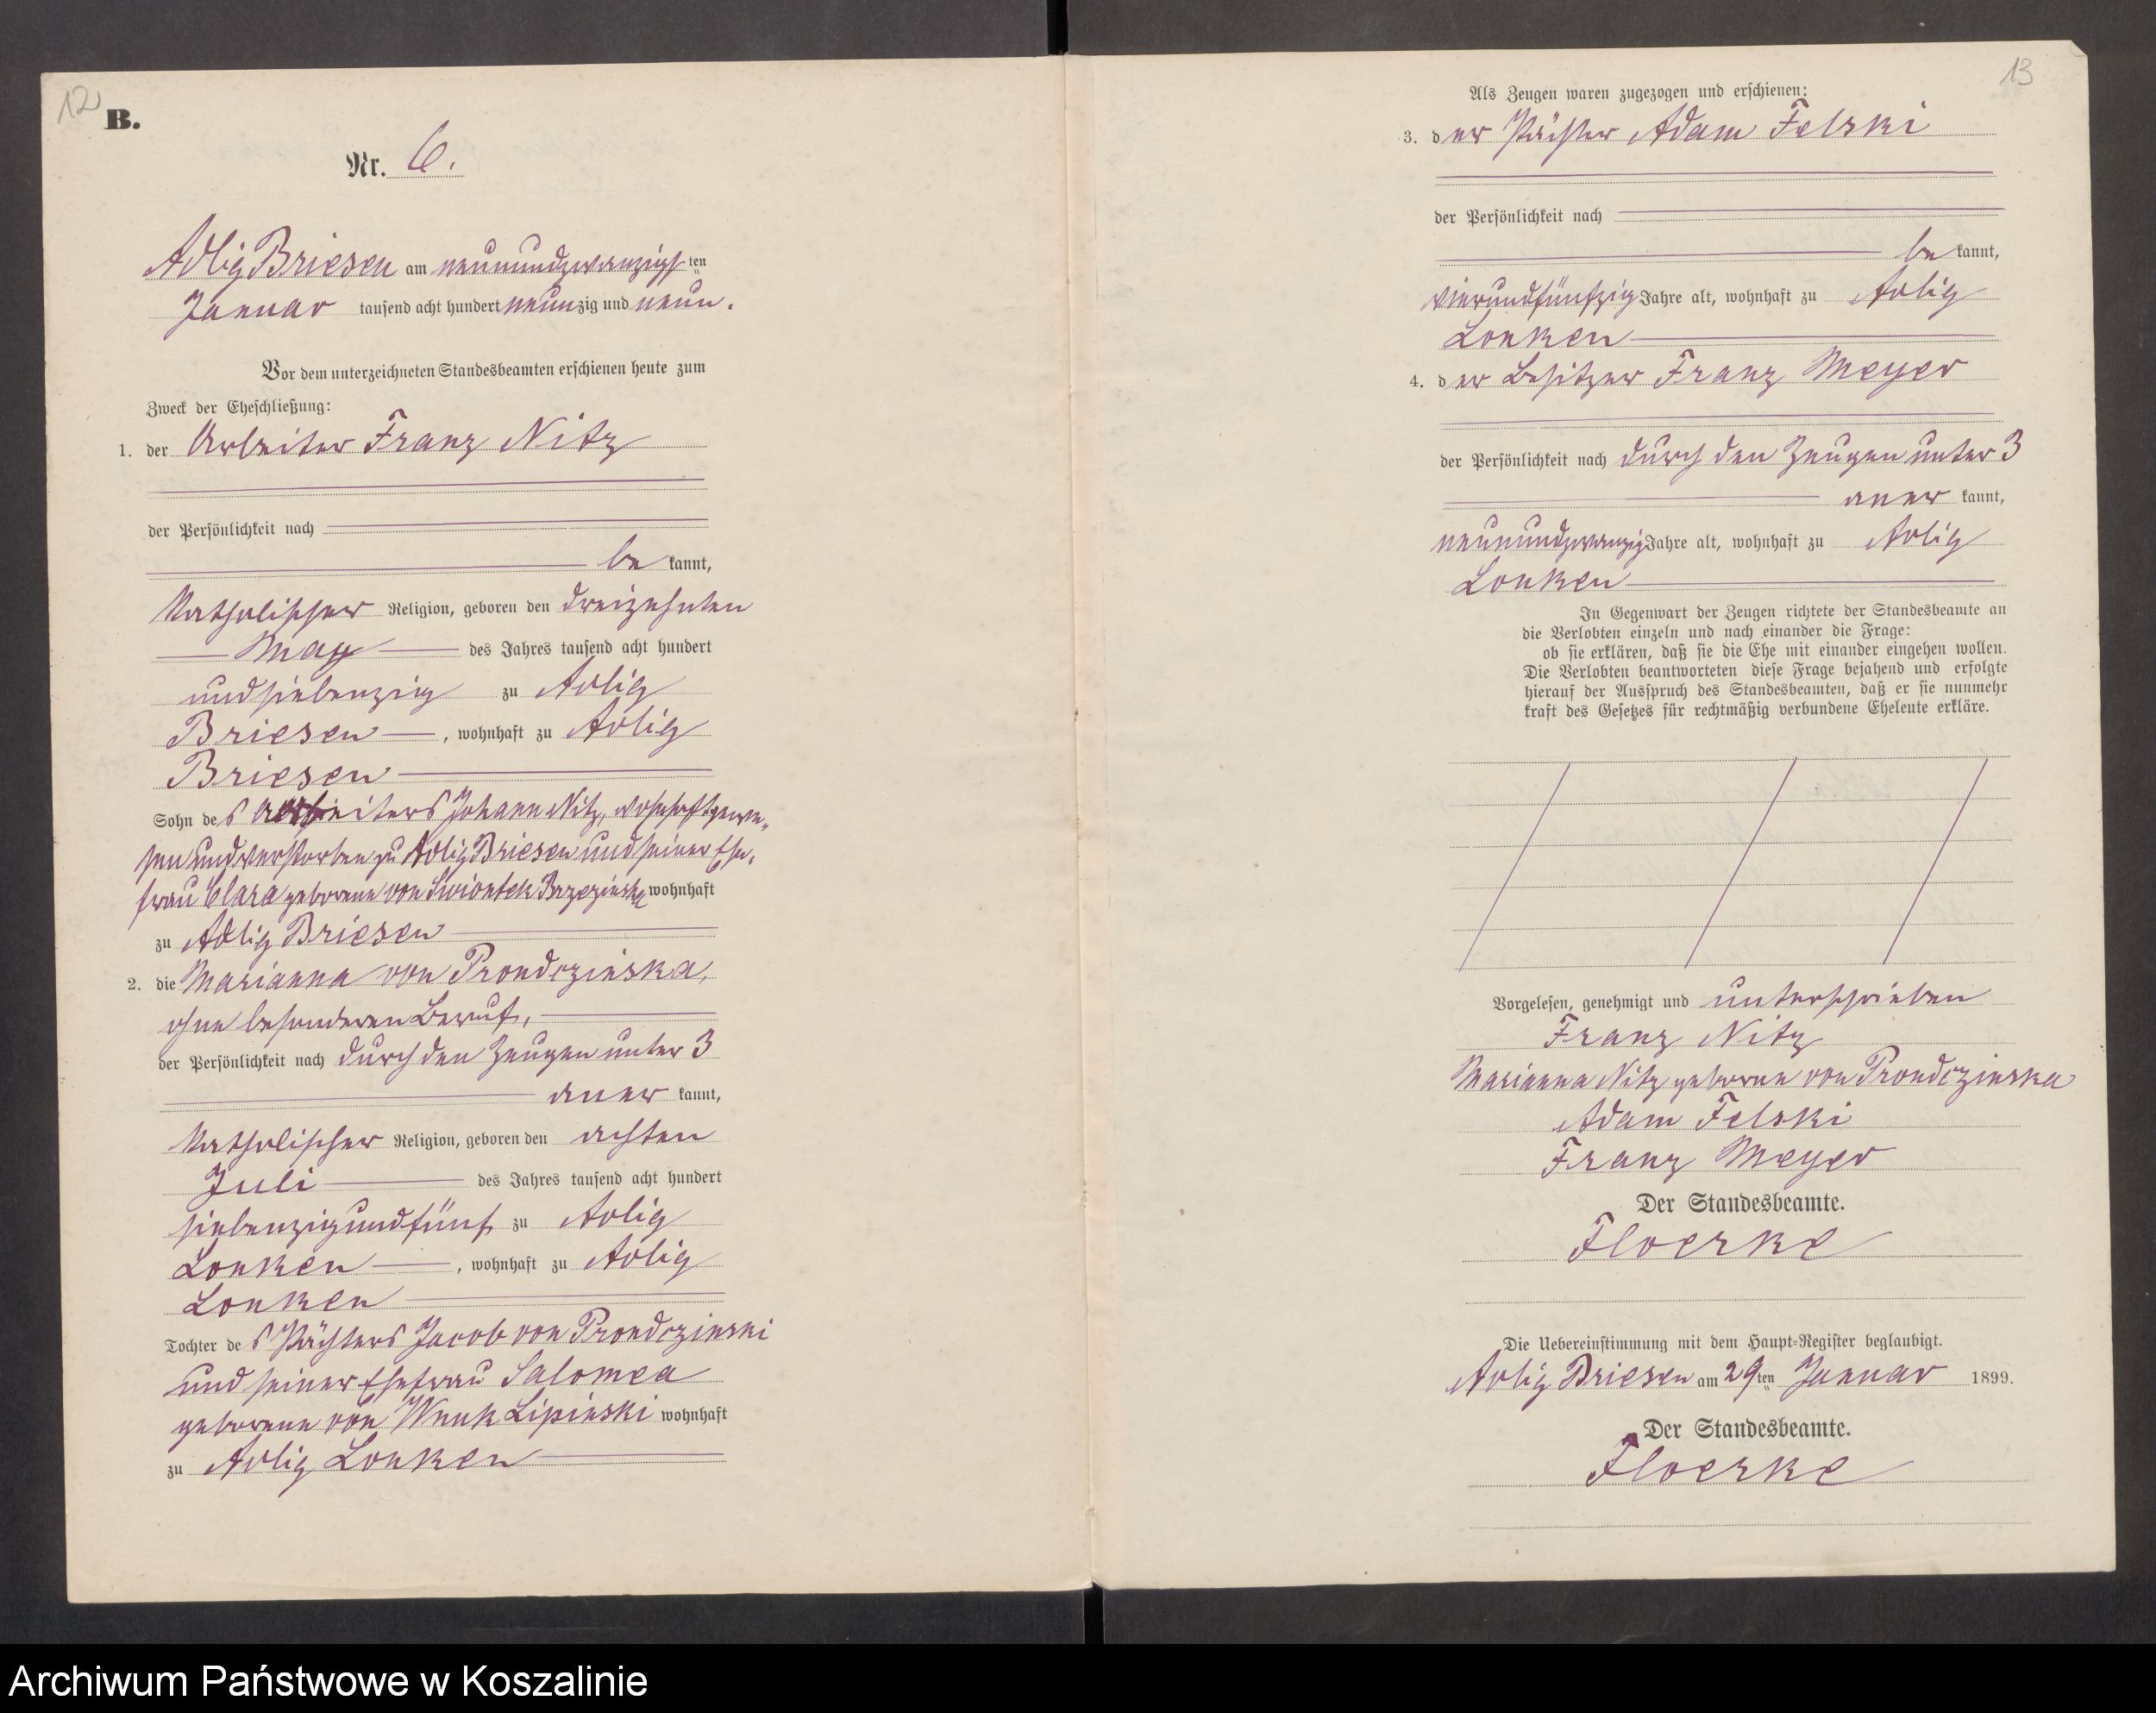 12
B.
Nr. 6.
Adlig Briesen am neunundzwanzigsten
Januar tausend acht hundert neunzig und neun.
Vor dem unterzeichneten Standesbeamten erschienen heute zum
Zweck der Eheschließung:
1. der Arbeiter Franz Nitz
der Persönlichkeit nach
be kannt,
katholischer Religion, geboren den dreizehnten
May des Jahres tausend acht hundert
undsiebenzig zu Adlig
Briesen, wohnhaft zu Adlig
Briesen
Sohn des Arbeiters Johann Nitz, wohnhaft gewe-
sen und verstorben zu Adlig Briesen und seiner Ehe-
frau Clara geborene von Swiontek Brzezinski wohnhaft
zu Adlig Briesen
2. die Marianna von Prondzinska,
ohne besonderen Beruf,
der Persönlichkeit nach durch den Zeugen unter 3
aner kannt,
katholischer Religion, geboren den achten
Juli des Jahres tausend acht hundert
siebenzigundfünf zu Adlig
Lonken, wohnhaft zu Adlig
Lonken
Tochter des Pächters Jacob von Prondzinski
und seiner Ehefrau Salomea
geborene von Wnuk Lipinski wohnhaft
zu Adlig Lonken
13
Als Zeugen waren zugezogen und erschienen:
3. der Pächter Adam Felski
der Persönlichkeit nach
be kannt,
vierundfünfzig Jahre alt, wohnhaft zu Adlig
Lonken
4. der Besitzer Franz Meyer
der Persönlichkeit nach durch den Zeugen unter 3
aner kannt,
neunundzwanzig Jahre alt, wohnhaft zu Adlig
Lonken
In Gegenwart der Zeugen richtete der Standesbeamte an
die Verlobten einzeln und nach einander die Frage:
ob sie erklären, daß sie die Ehe mit einander eingehen wollen.
Die Verlobten beantworteten diese Frage bejahend und erfolgte
hierauf der Ausspruch des Standesbeamten, daß er sie nunmehr
kraft des Gesetzes für rechtmäßig verbundene Eheleute erkläre.
Vorgelesen, genehmigt und unterschrieben
Franz Nitz
Marianna Nitz geborene von Prondzinska
Adam Felski
Franz Meyer
Der Standesbeamte.
Floerke
Die Uebereinstimmung mit dem Haupt-Register beglaubigt.
Adlig Briesen am 29ten Januar 1899.
Der Standesbeamte.
Floerke
Archiwum Państwowe w Koszalinie